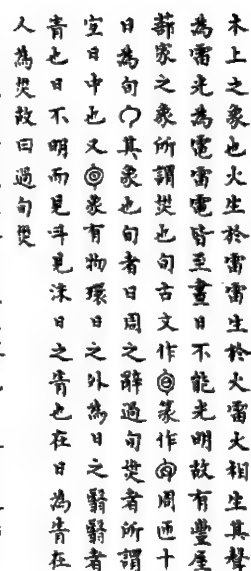 木上之象也火生於雷雷生於火雷火相生其聲
為雷光為電雷電皆至晝日不能光明故有豐屋
蔀家之象所謂災也旬古文作◎篆作周匝十
日為旬其象也旬者日周之辭過旬災者所謂
宜日中也又◎象有物環日之外為日之翳翳者
眚也日不明而見斗見沬日之眚也在日為眚在
人為災故曰過旬災